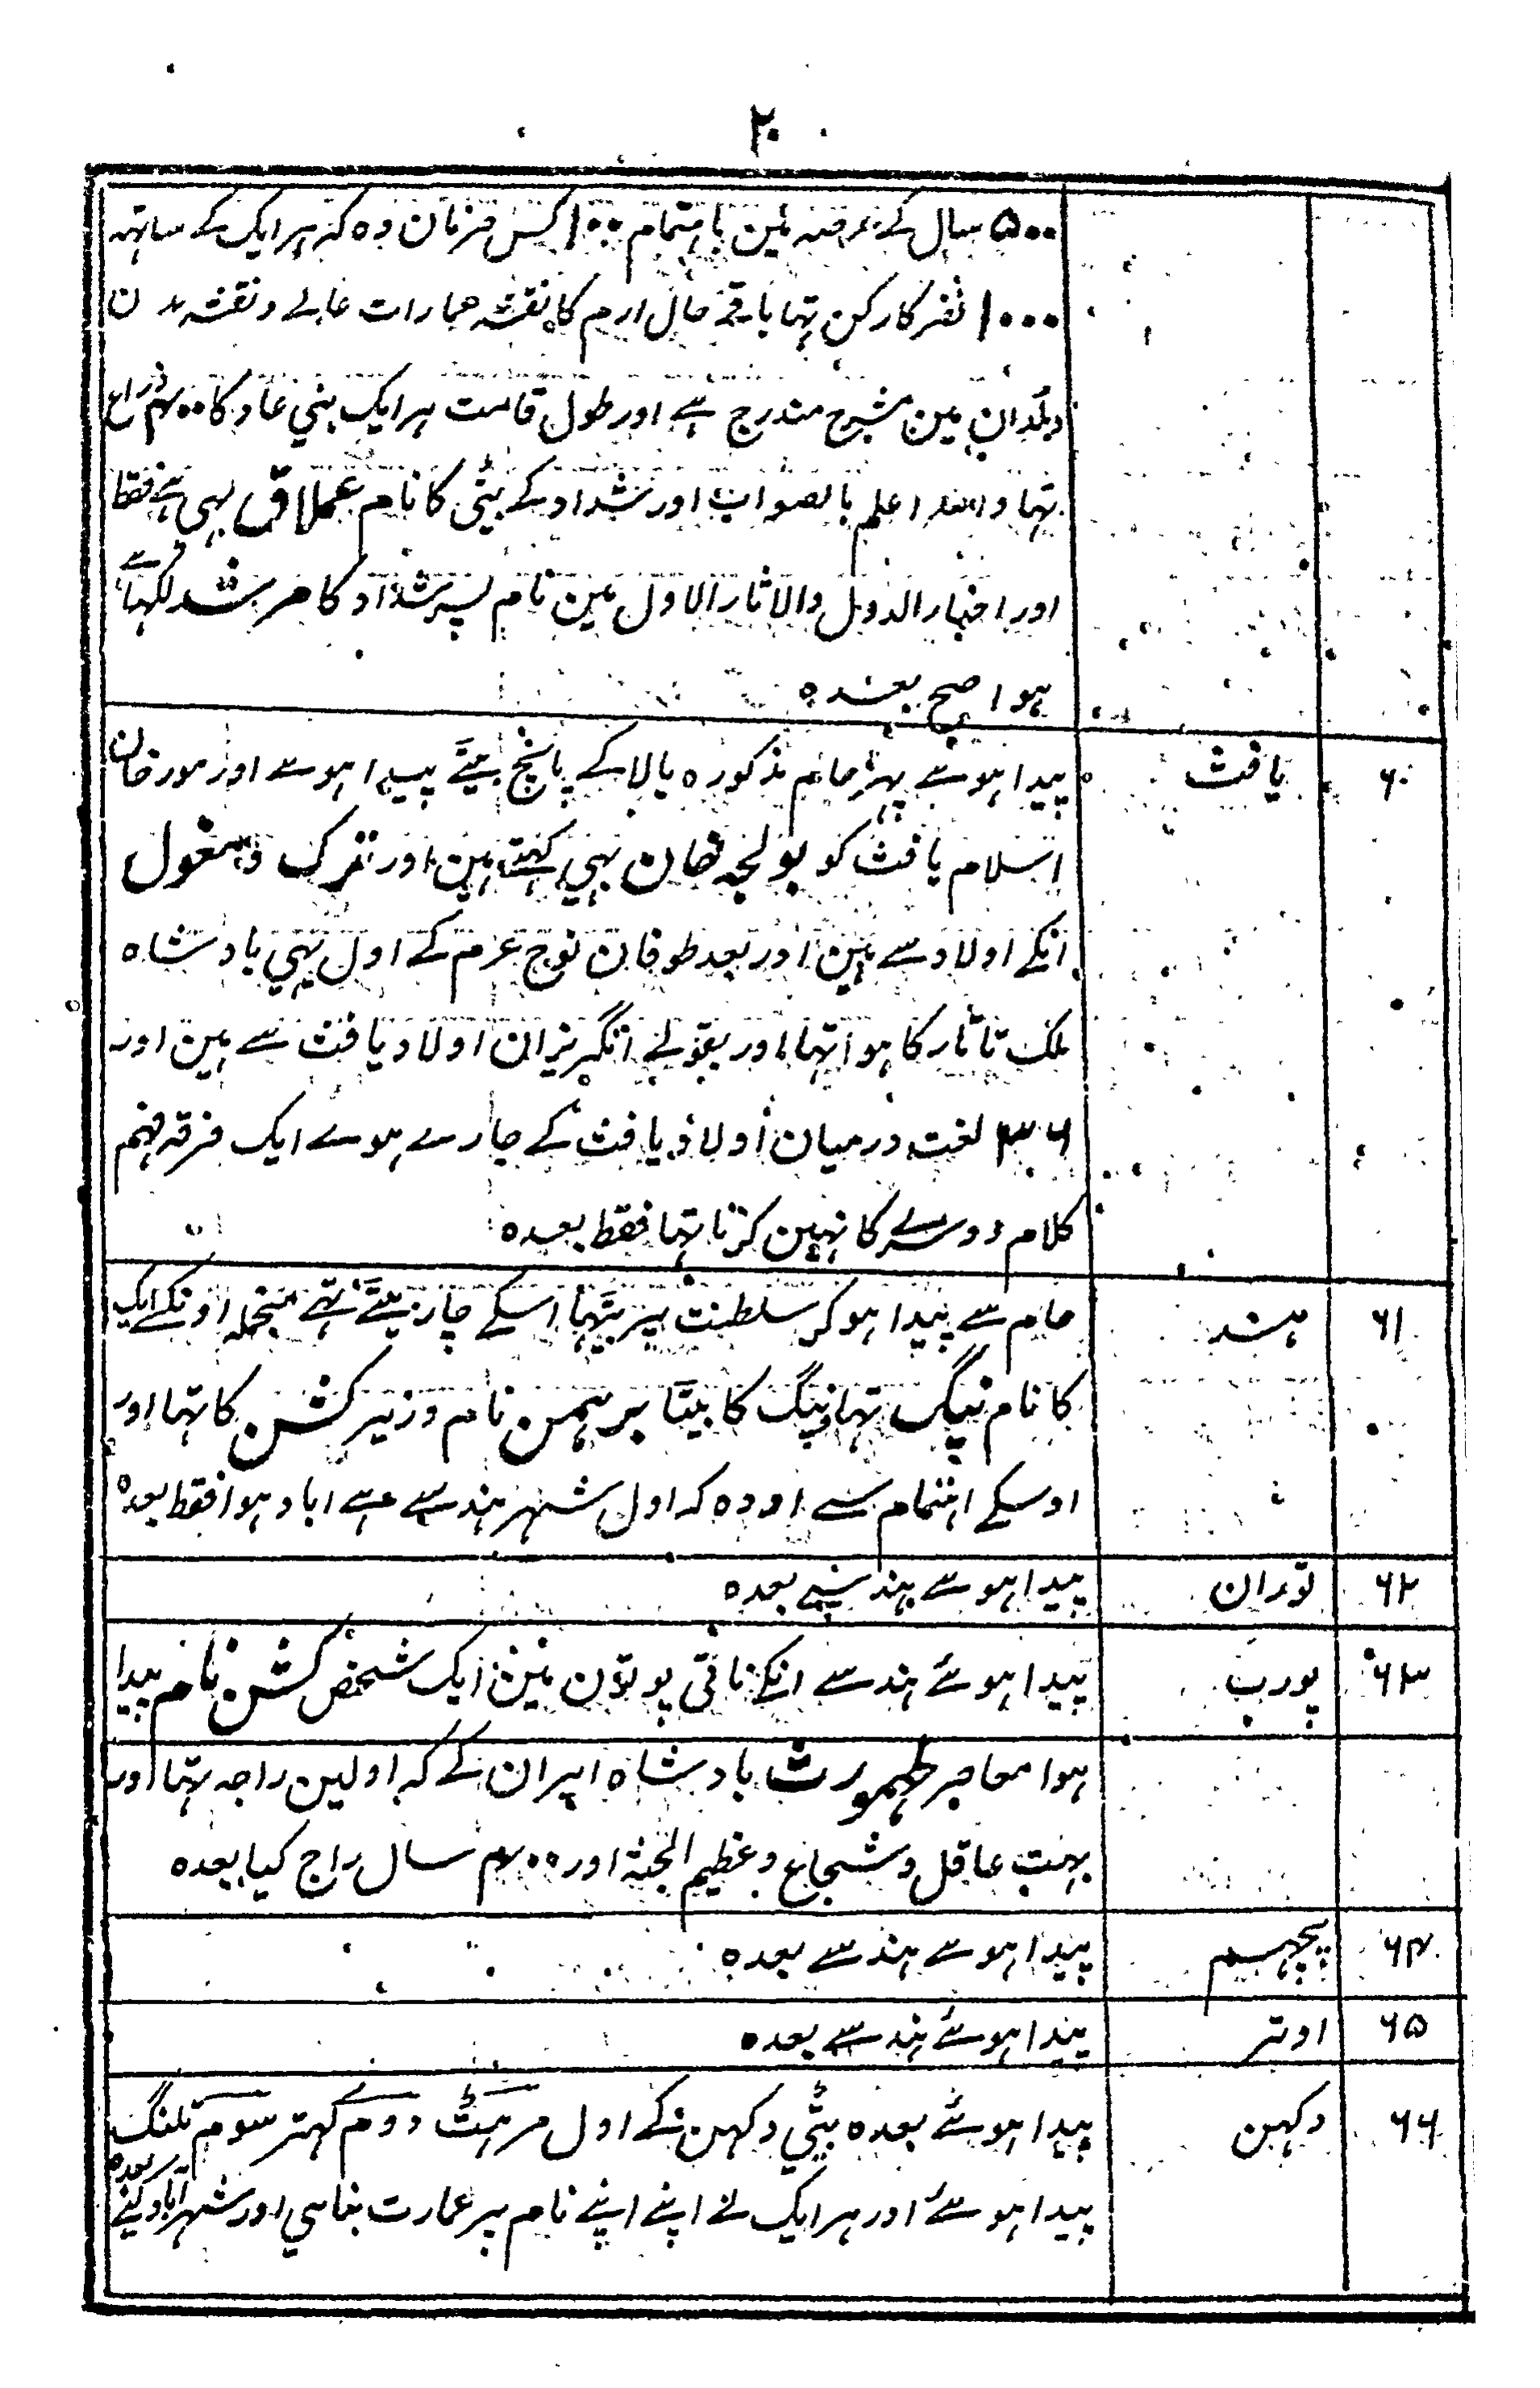 ۲۰
۵۰۰ سال کے عرصہ مین باہتمام ۱۰۰ کس فرمان دہ کہ ہر ایک کے ساتہہ
۱۰۰۰ نفر کارکن تہا باقے حال ارم کا نقشہ عمارات عالے و نقشہ بدن
دبلدان مین مشرح مندرج ہے اور طول قامت ہر ایک بنی عاد کا ۴۰۰ ذراع
تہا واللہ اعلم بالصواب اور شداد کے بیٹی کا نام عملاق بہی ہے فقط
اور اخبار الدول والاثار الاول مین نام پسر شداد کا مرشد لکہا ہے
ہوا صح بعدہ
۶۰ یافث پیدا ہوے پہر حام مذکورہ بالا کے پانچ بیٹے پیدا ہوے اور مورخان
اسلام یافث کو بولجہ خان بہی کہتے ہین اور ترک و مغول
انکے اولاد سے ہین اور بعد طوفان نوح عرم کے اول یہی بادشاہ
ملک تاتار کا ہوا تہا اور بقولے انگریزان اولاد یافث سے ہین اور
۳۶ لغت درمیان اولاد یافث کے جارے ہوے ایک فرقہ فہم
کلام دوسرے کا نہین کرتا تہا فقط بعدہ
۶۱ ہند حام سے پیدا ہوکر سلطنت پر بیٹہا اسکے چار بیٹے تہے منجملہ اونکے ایک
کا نام نپگ تہا نپگ کا بیٹا برہمن نام وزیر کشن کا تہا اور
اوسکے اہتمام سے اودہ کہ اول شہر ہند سے ہے اباد ہوا فقط بعدہ
۶۲ توران پیدا ہوے ہند سے بعدہ
۶۳ پورب پیدا ہوئے ہند سے انکے ناتی پوتون مین ایک شخص کشن نام پیدا
ہوا معاصر طہمورث بادشاہ ایران کے کہ اولین راجہ تہا اور
بہت عاقل و شجاع و عظیم الجثۃ اور ۴۰۰ سال راج کیا بعدہ
۶۴ پچہم پیدا ہوے ہند سے بعدہ
۶۵ اوتر پیدا ہوئے ہند سے بعدہ
۶۶ دکہن پیدا ہوئے بعدہ بیٹی دکہن کے اول مرہٹ دوم کہتر سوم تلنگ
پیدا ہوئے اور ہر ایک نے اپنے اپنے نام پر عمارت بناسی اور شہر آباد کئے بعدہ